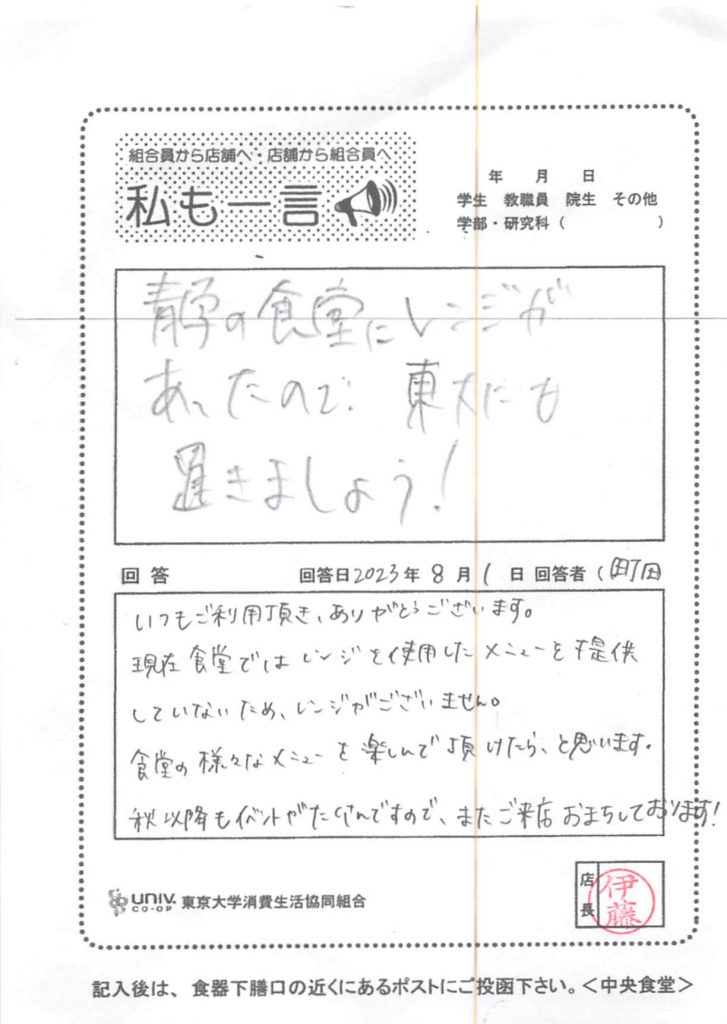 組合員から店舗へ・店舗から組合員へ
私も一言
年 月 日
学生 教職員 院生 その他
学部・研究科 ( )
青学の食堂にレンジが
あったので、東大にも
置きましょう!
回答 回答日2023年8月1日 回答者 (町田
いつもご利用頂き、ありがとうございます。
現在食堂ではレンジを使用したメニューを提供
していないため、レンジがございません。
食堂の様々なメニューを楽しんで頂けたら、と思います。
秋以降もイベントがたくさんですので、またご来店おまちしております!
UNIV. CO-OP 東京大学消費生活協同組合
店長 伊藤
記入後は、食器下膳口の近くにあるポストにご投函下さい。<中央食堂>